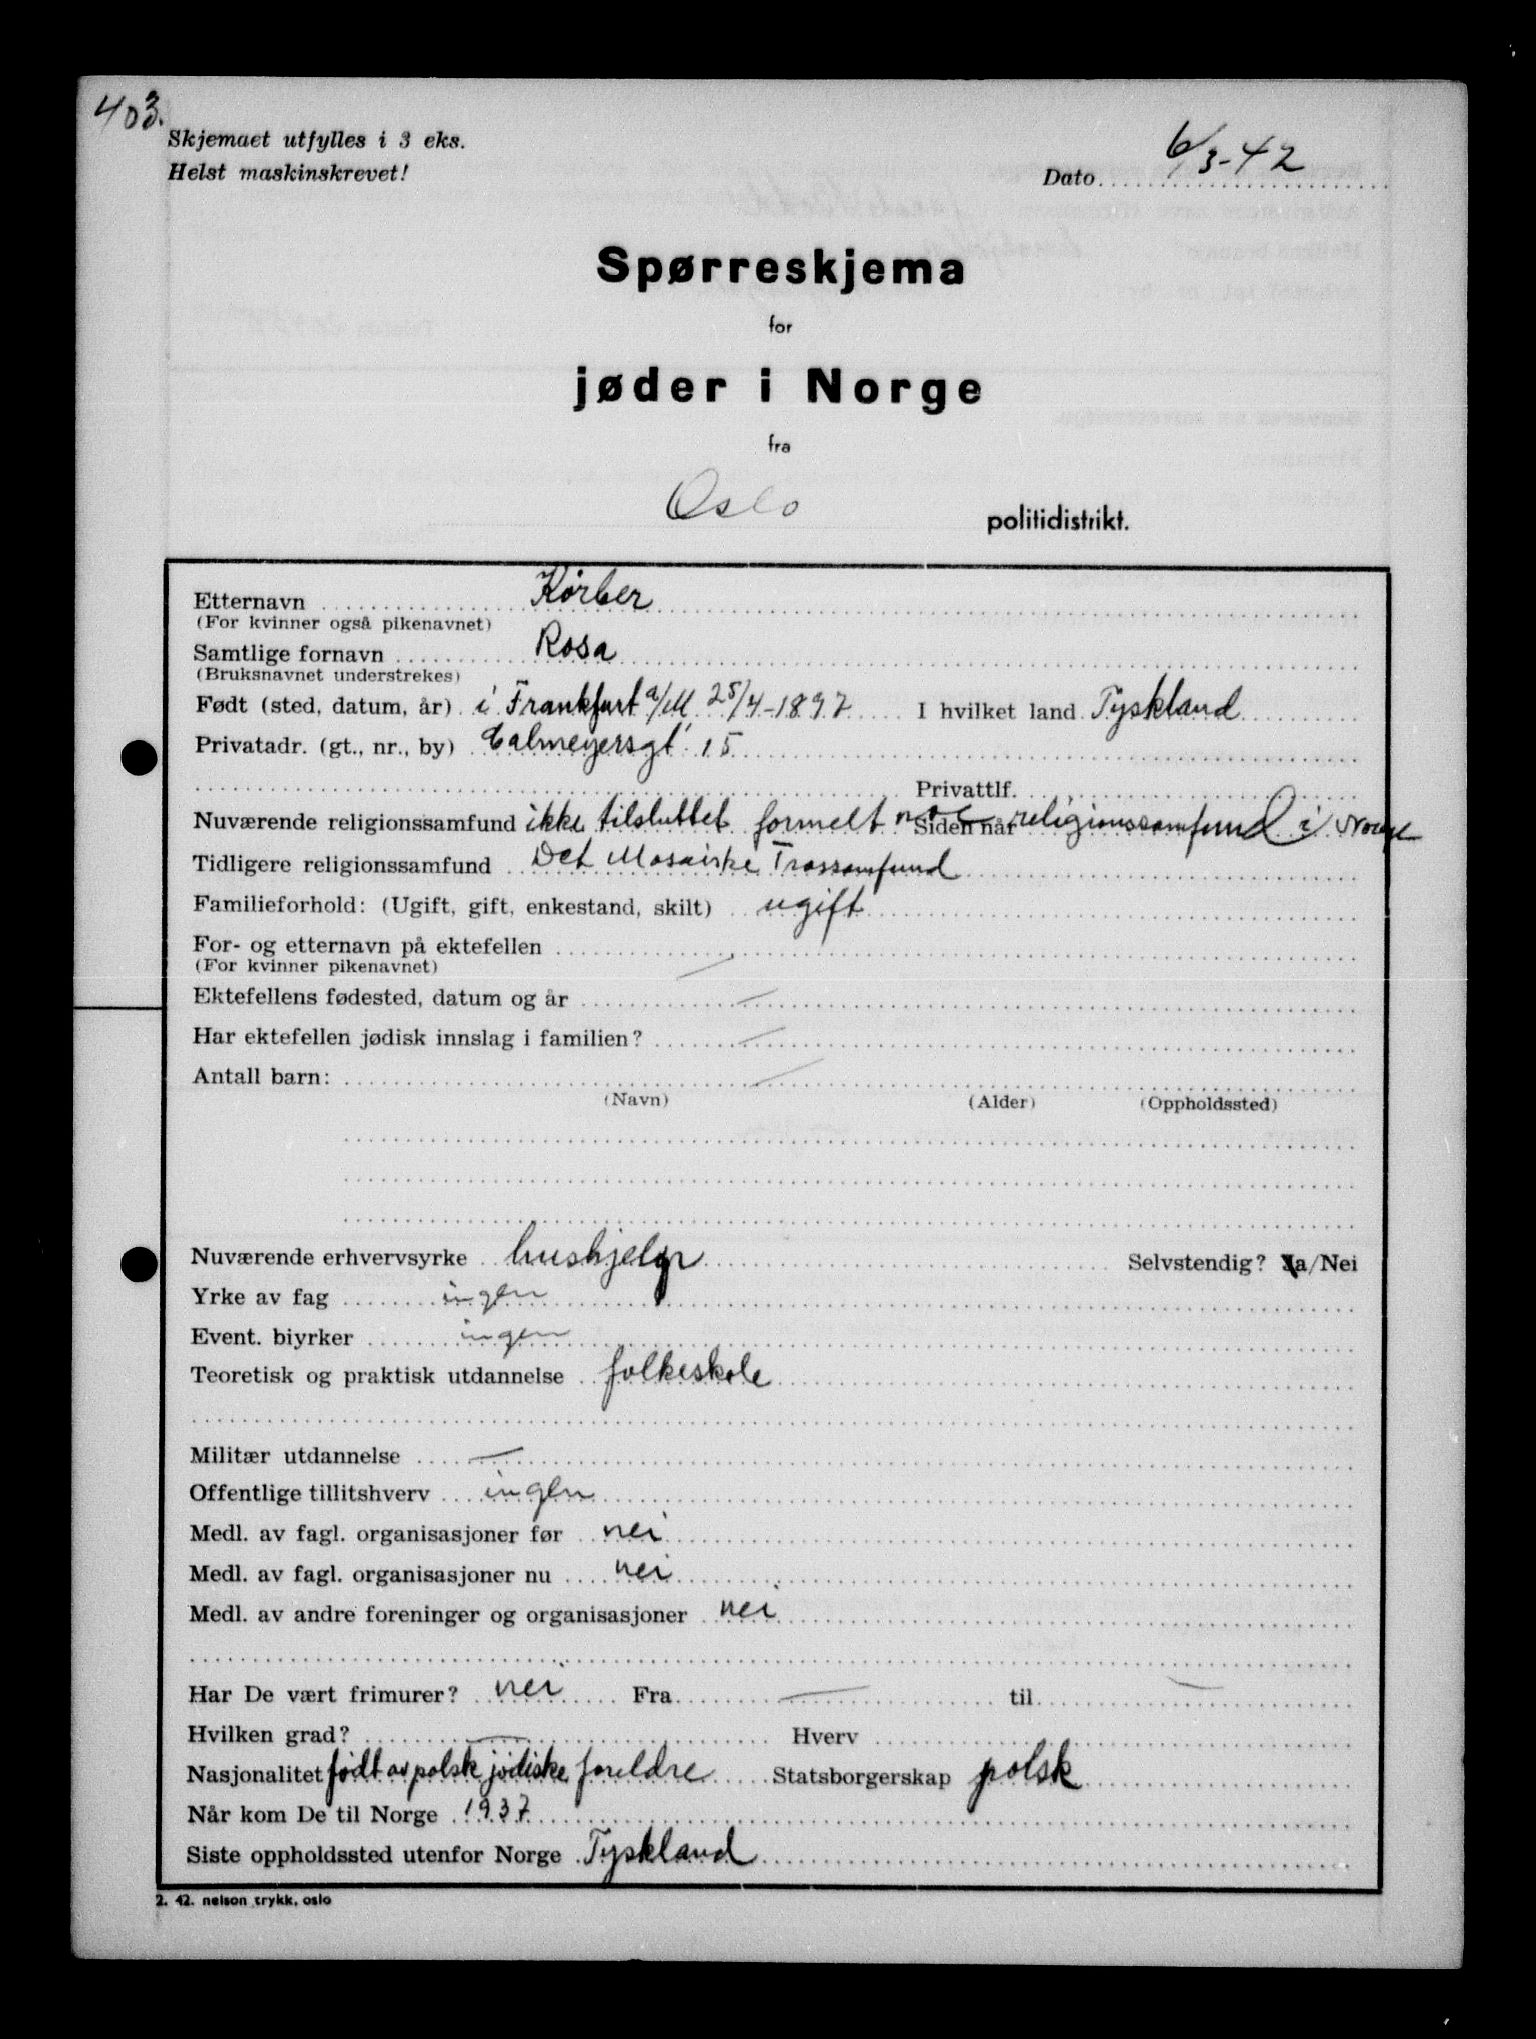 403.
Skjemaet utfylles i 3 eks.
Helst maskinskrevet!
Dato 6/3-42
Spørreskjema
for
jøder i Norge
fra
Oslo politidistrikt.
Etternavn Körber
(For kvinner også pikenavnet)
Samtlige fornavn Rosa
(Bruksnavnet understrekes)
Født (sted, datum, år) i Frankfurt a/M 25/4-1897 I hvilket land Tyskland
Privatadr. (gt., nr., by) Calmeyersgt 15
Privattlf.
Nuværende religionssamfund ikke tilsluttet formelt noe Siden når religionssamfund i Norge
Tidligere religionssamfund Det Mosaiske Trossamfund
Familieforhold: (Ugift, gift, enkestand, skilt) ugift
For- og etternavn på ektefellen —
(For kvinner pikenavnet)
Ektefellens fødested, datum og år —
Har ektefellen jødisk innslag i familien? —
Antall barn: —
(Navn) (Alder) (Oppholdssted)
Nuværende erhvervsyrke hushjelp Selvstendig? Ja/Nei
Yrke av fag ingen
Event. biyrker ingen
Teoretisk og praktisk utdannelse folkeskole
Militær utdannelse —
Offentlige tillitshverv ingen
Medl. av fagl. organisasjoner før nei
Medl. av fagl. organisasjoner nu nei
Medl. av andre foreninger og organisasjoner nei
Har De vært frimurer? nei Fra — til —
Hvilken grad? — Hverv
Nasjonalitet født av polsk jödiske foreldre Statsborgerskap polsk
Når kom De til Norge 1937
Siste oppholdssted utenfor Norge Tyskland
2. 42. nelson trykk, oslo